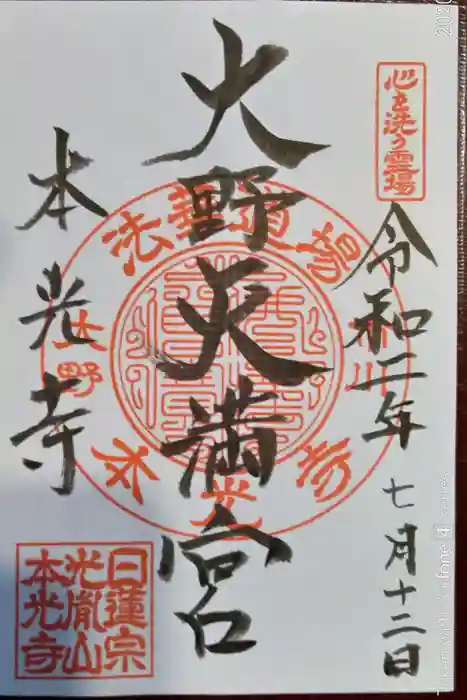 心を洗う霊場
令和二年 七月十二日
大野天満宮
本光寺
法華道場
川
大野
本光寺
日蓮宗
光胤山
本光寺
fone 4 series